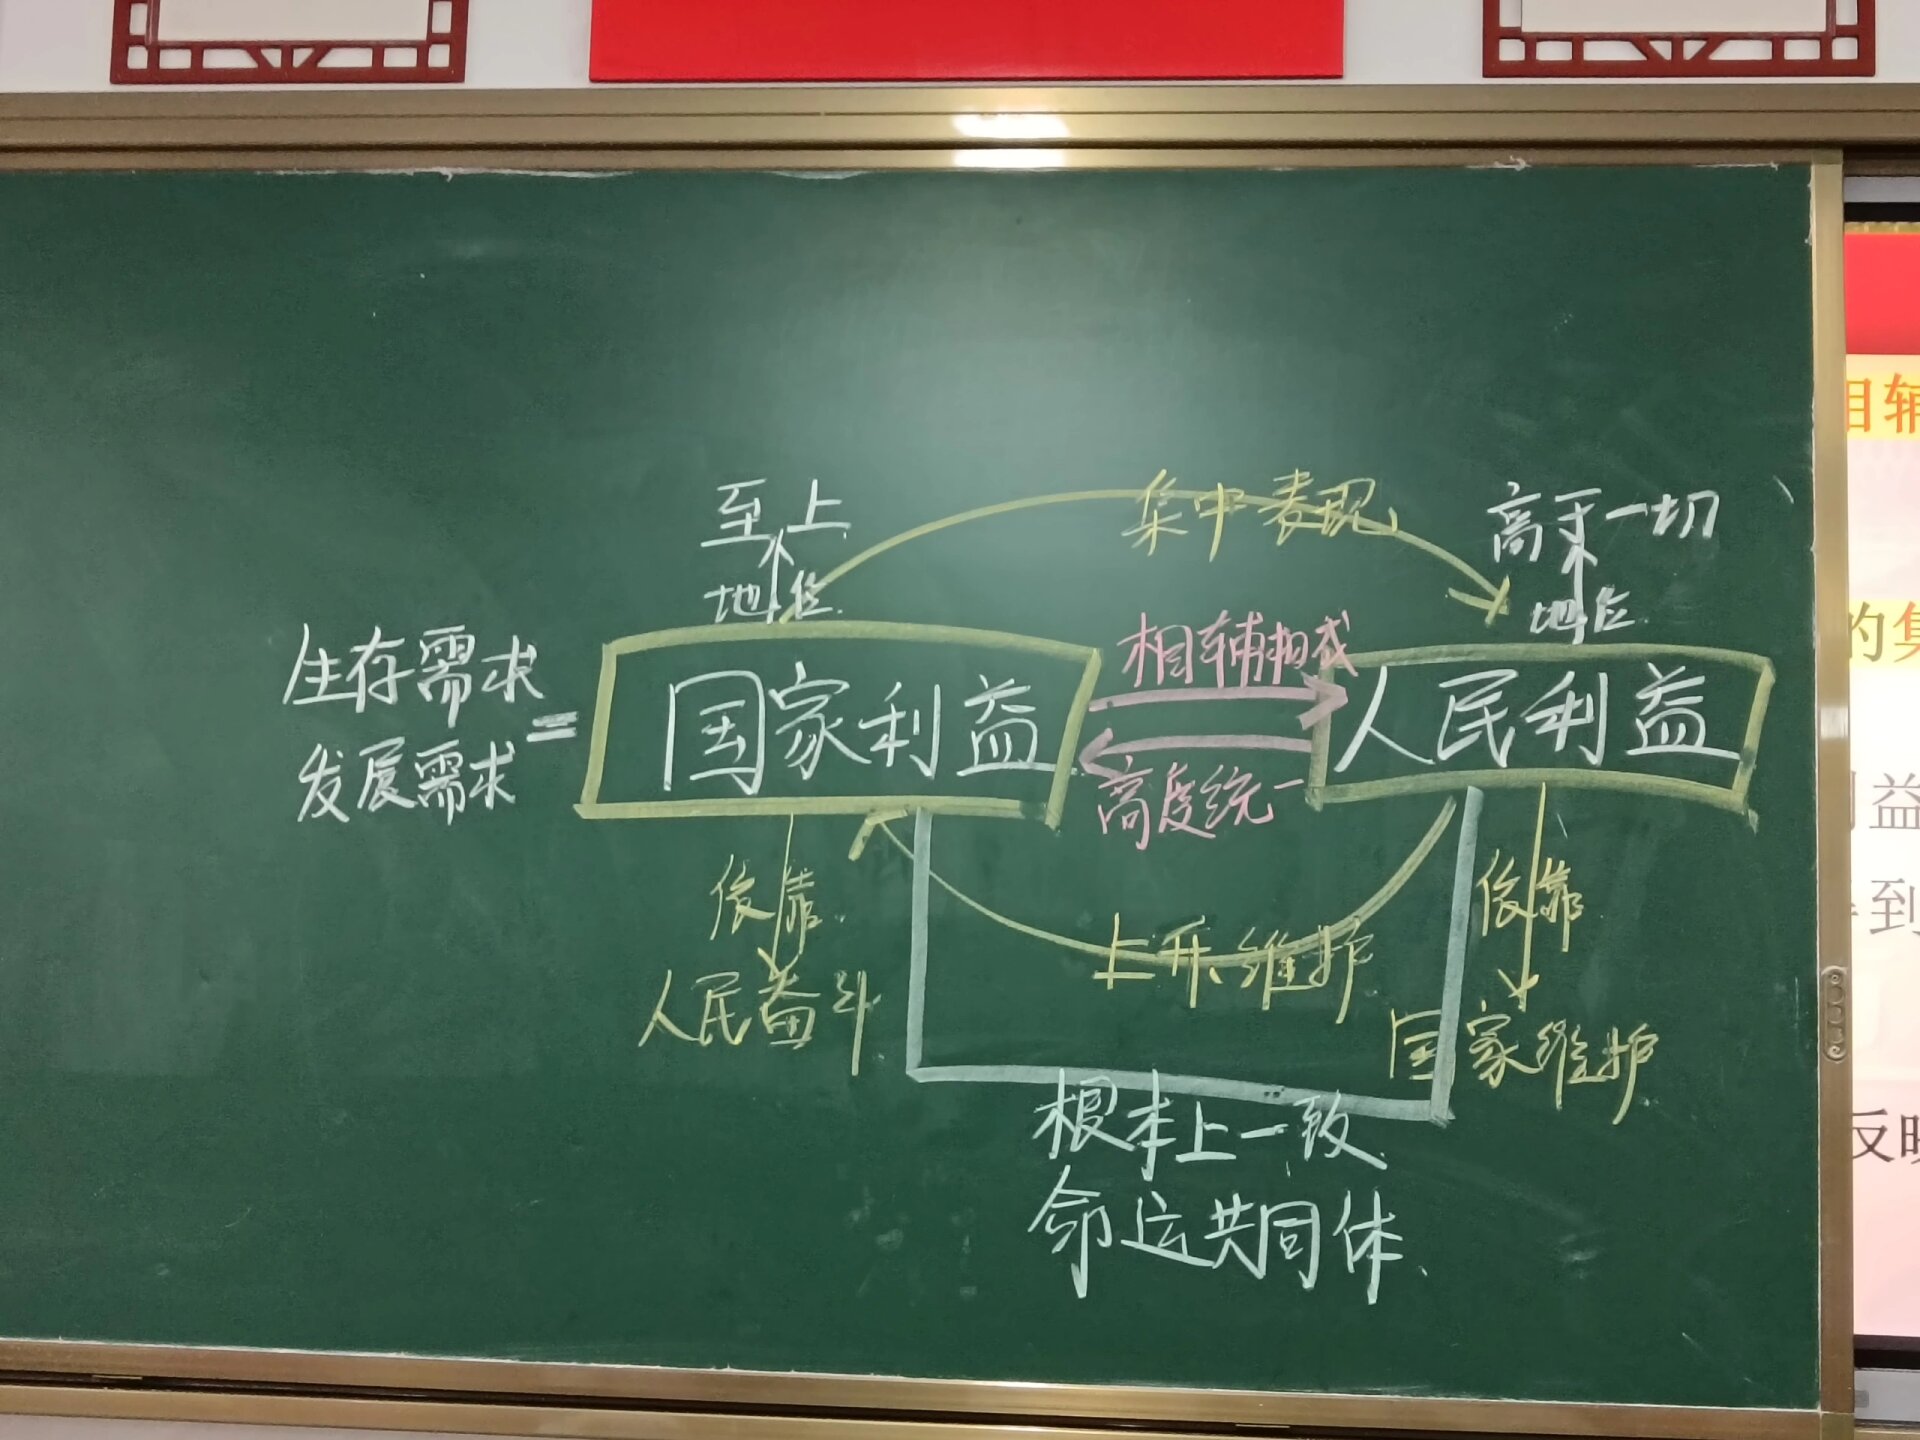 至上
集中表现
高于一切
地位
地位
生存需求
相辅相成
=
国家利益
人民利益
发展需求
高度统一
依靠
依靠
上升 维护
人民奋斗
国家维护
根本上一致
命运共同体
相辅
的集
益
到
反映